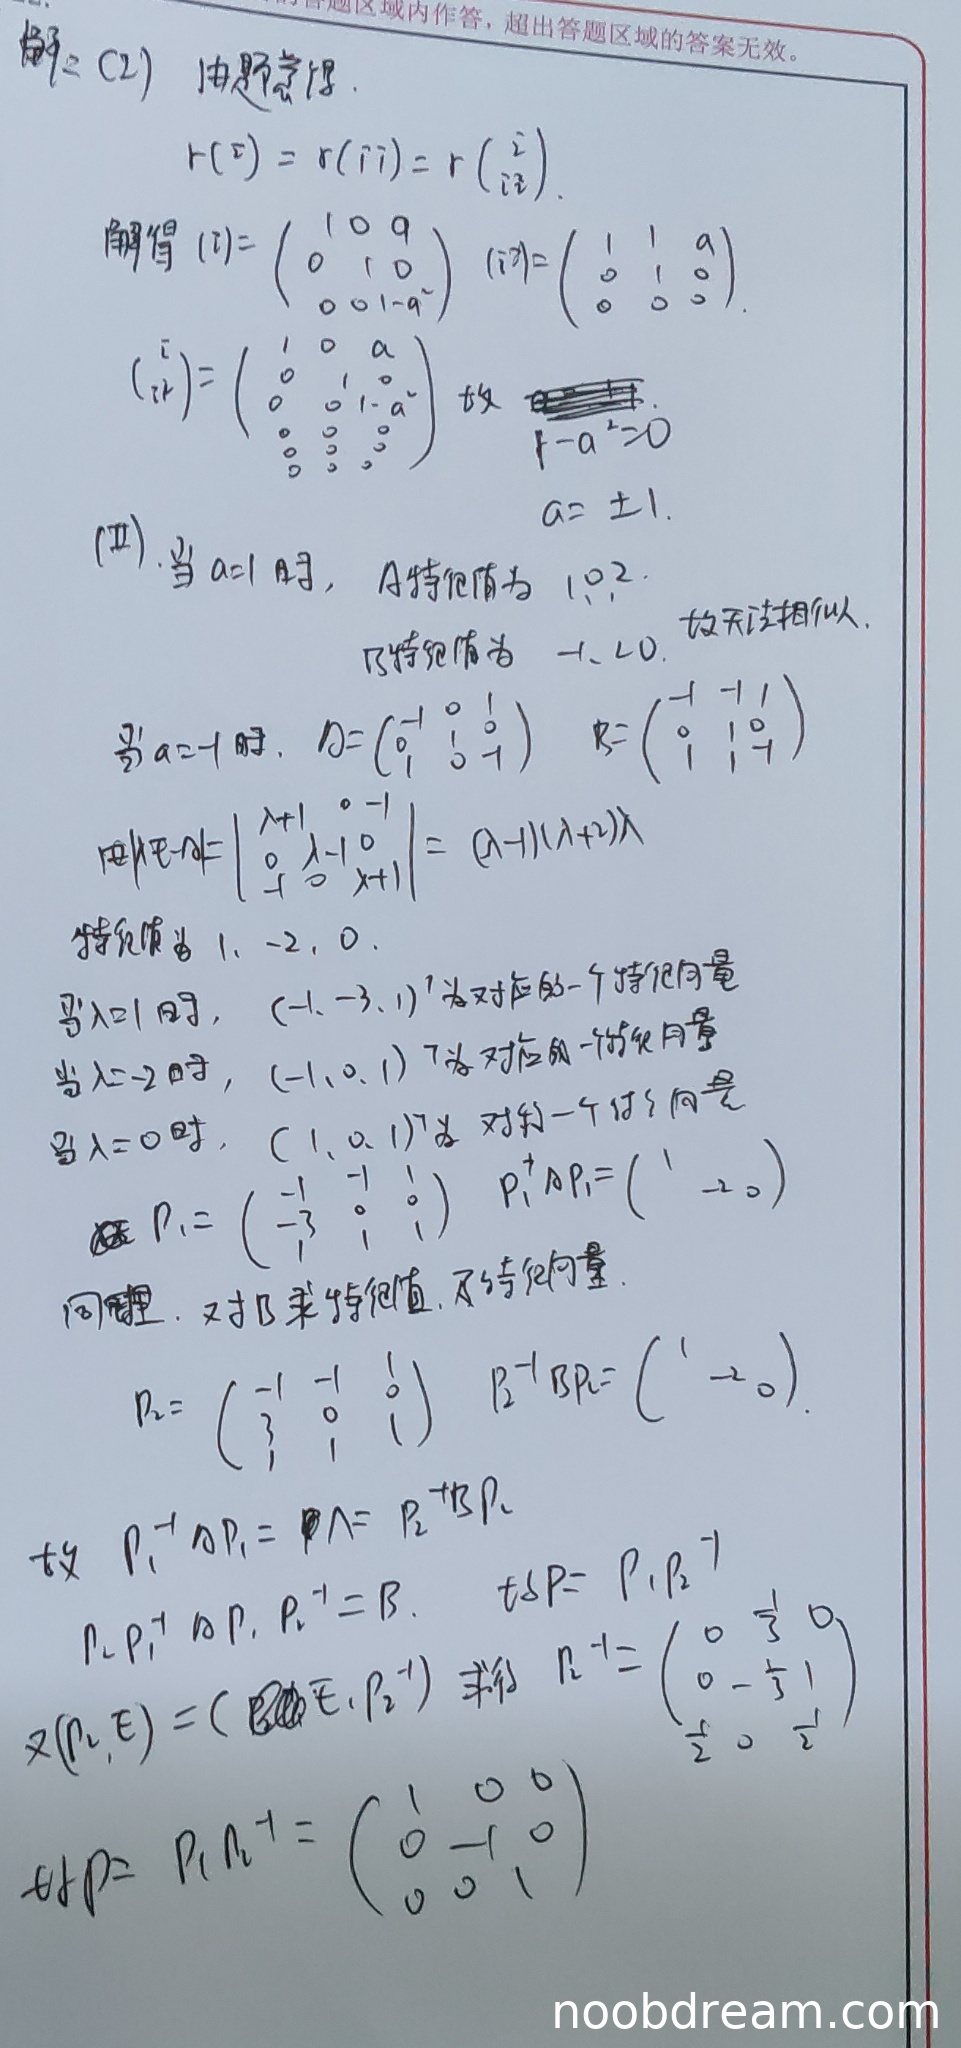 的答题区域内作答，超出答题区域的答案无效。
解: (2) 由题意得.
r(i) = r(ii) = r(i ii).
解得 (i)= (1 0 a
0 1 0
0 0 1-a²) (ii)= (1 1 a
0 1 0
0 0 0).
(i ii)= (1 0 a
0 1 0
0 0 1-a²
0 0 0
0 0 0
0 0 0) 故
1-a²=0
a= ±1.
(Ⅱ). 当a=1时, A特征值为 1、0、2.
B特征值为 -1、2、0. 故无法相似.
当a=-1时. A= (-1 0 1
0 1 0
1 0 -1) B= (-1 -1 1
0 1 0
1 1 -1)
由|λE-A|= |λ+1 0 -1
0 λ-1 0
-1 0 λ+1| = (λ-1)(λ+2)λ
特征值为 1、-2、0.
当λ=1时, (-1、-3、1)ᵀ为对应的一个特征向量
当λ=-2时, (-1、0、1)ᵀ为对应的一个特征向量
当λ=0时, (1、0、1)ᵀ为对的一个特征向量
P₁= (-1 -1 1
-3 0 0
1 1 1) P₁⁻¹AP₁= (1 -2 0)
同理. 对B求特征值.及特征向量.
P₂= (-1 -1 1
3 0 0
1 1 1) P₂⁻¹BP₂= (1 -2 0).
故 P₁⁻¹AP₁= Λ= P₂⁻¹BP₂
P₂P₁⁻¹AP₁P₂⁻¹=B. 故P= P₁P₂⁻¹
又(P₂,E)=( E,P₂⁻¹) 求得 P₂⁻¹= (0 1/3 0
0 -1/3 1
1/2 0 1/2)
故P= P₁P₂⁻¹= (1 0 0
0 -1 0
0 0 1)
noobdream.com